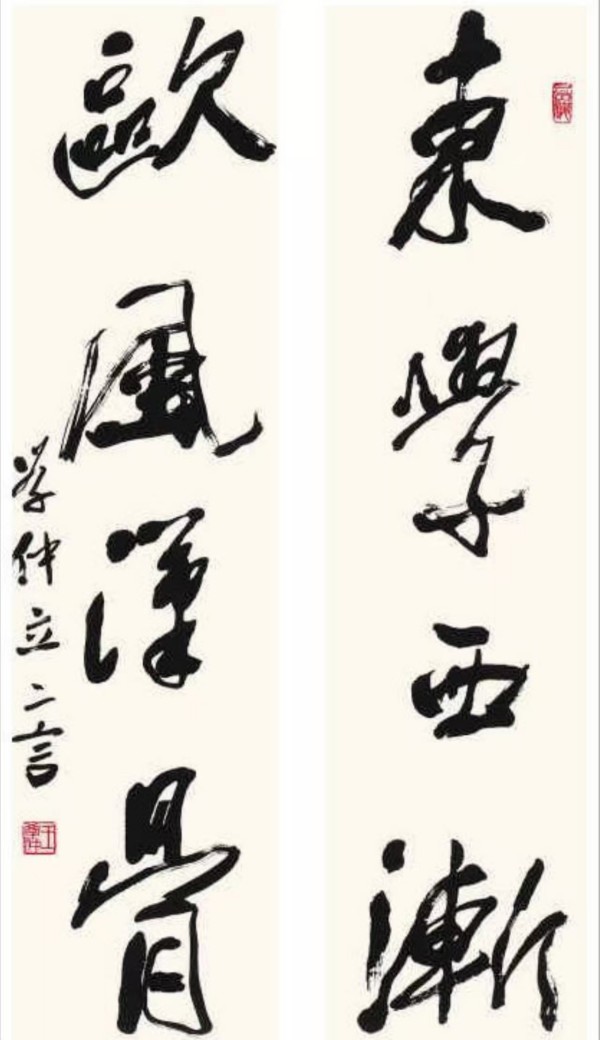 東學西漸
歐風漢骨
学仲立二言